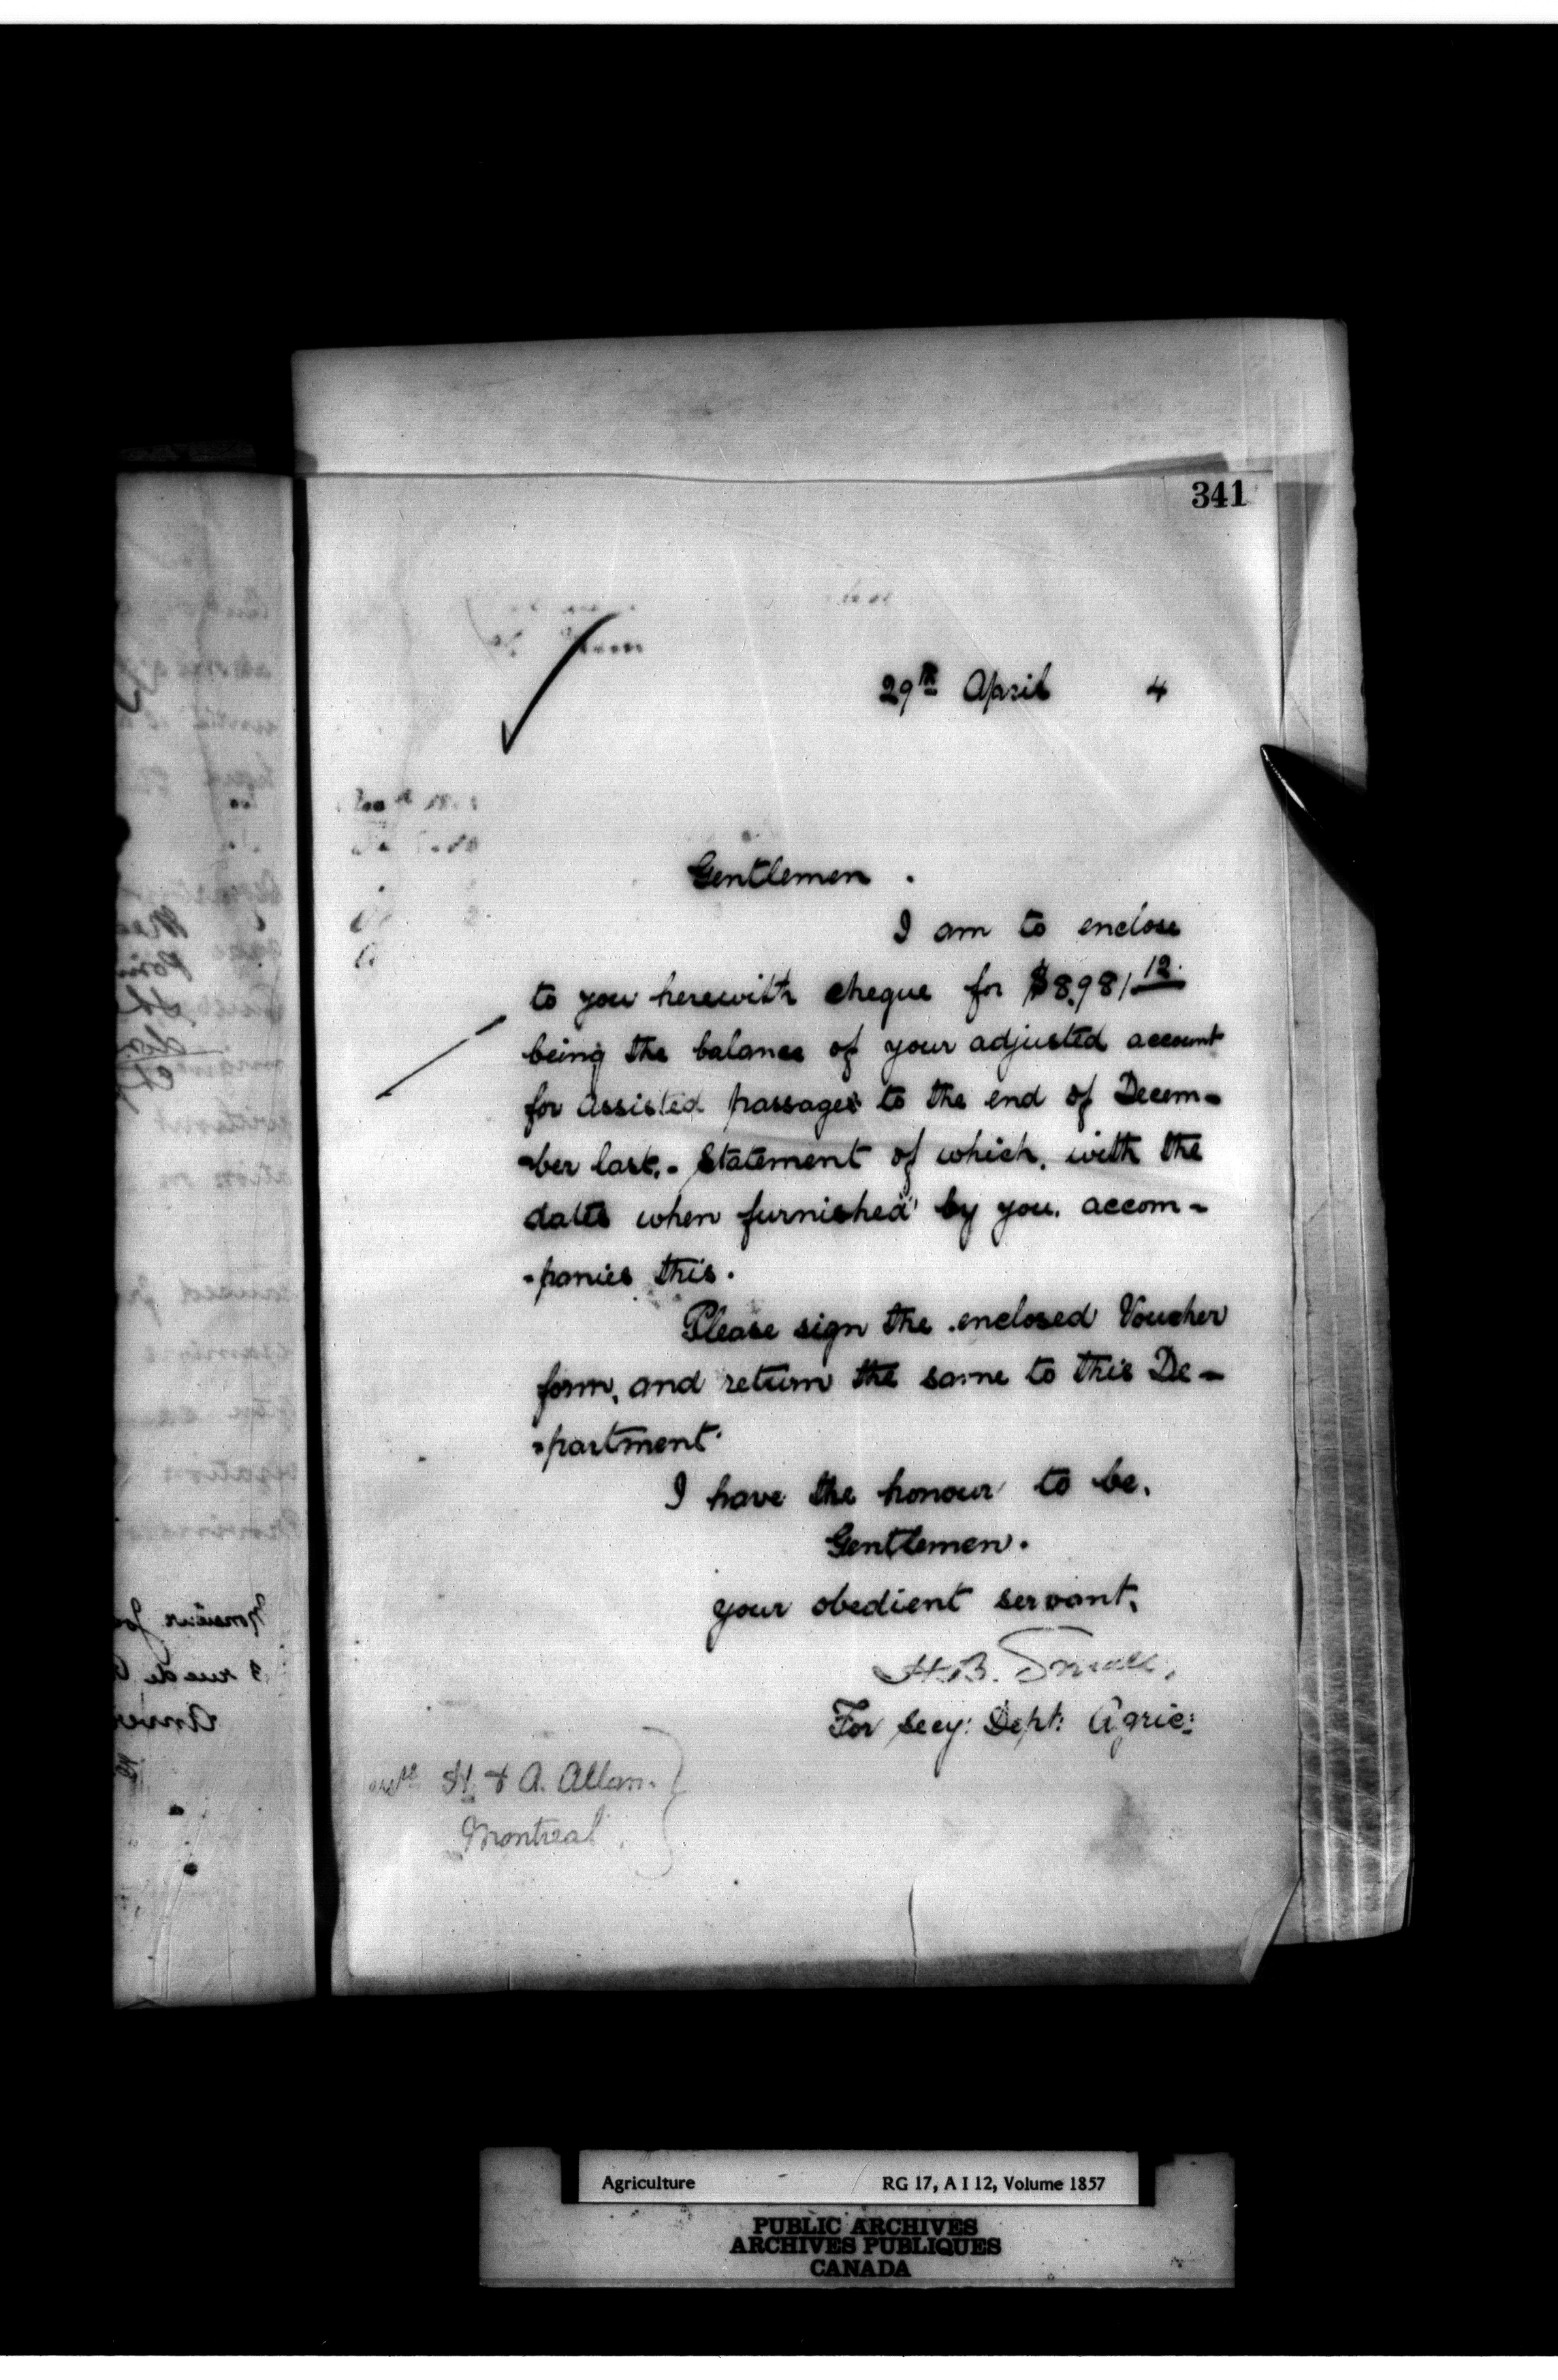 341
29th April 4
Gentlemen.
I am to enclose
to you herewith cheque for $8,981 12.
being the balance of your adjusted account
for assisted passages to the end of Decem-
-ber last,- Statement of which, with the
dates when furnished by you, accom-
-panies this.
Please sign the enclosed Voucher
form, and return the same to this De-
-partment.
I have the honour to be,
Gentlemen.
your obedient servant,
H.B. Small,
For Secy: Dept: Agric:
H. & A. Allan.
Montreal.
Monsieur
3 rue de
Agriculture RG 17, A I 12, Volume 1857
PUBLIC ARCHIVES
ARCHIVES PUBLIQUES
CANADA